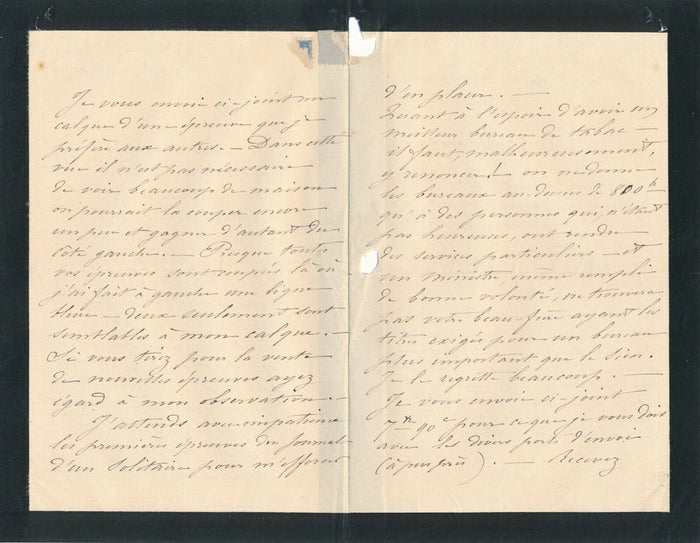 Je vous envoie ci-joint un
calque d'une épreuve que je
préfère aux autres. — Dans cette
vue il n'est pas nécessaire
de voir beaucoup de maison
on pourrait la couper encore
un peu et gagner d'autant du
côté gauche. — Presque toutes
vos épreuves sont coupées là où
j'ai fait à gauche une ligne
bleue — deux seulement sont
semblables à mon calque. —
Si vous tirez pour la vente
de nouvelles épreuves ayez
égard à mon observation. —
J'attends avec impatience
les premières épreuves du Journal
d'un Solitaire pour m'efforcer
d'en placer. —
Quant à l'espoir d'avoir un
meilleur bureau de tabac —
il faut, malheureusement,
y renoncer! on ne donne
les bureaux au-dessus de 800 fr
qu'à des personnes qui, n'étant
pas heureuses, ont rendu
des services particuliers — et
un ministre, même rempli
de bonne volonté, ne trouvera
pas votre beau-frère ayant les
titres exigés pour un bureau
plus important que le sien.
Je le regrette beaucoup. —
Je vous envoie ci-joint
7 fr 90 c pour ce que je vous dois
avec les divers ports d'envoi
(à peu près). — Recevez